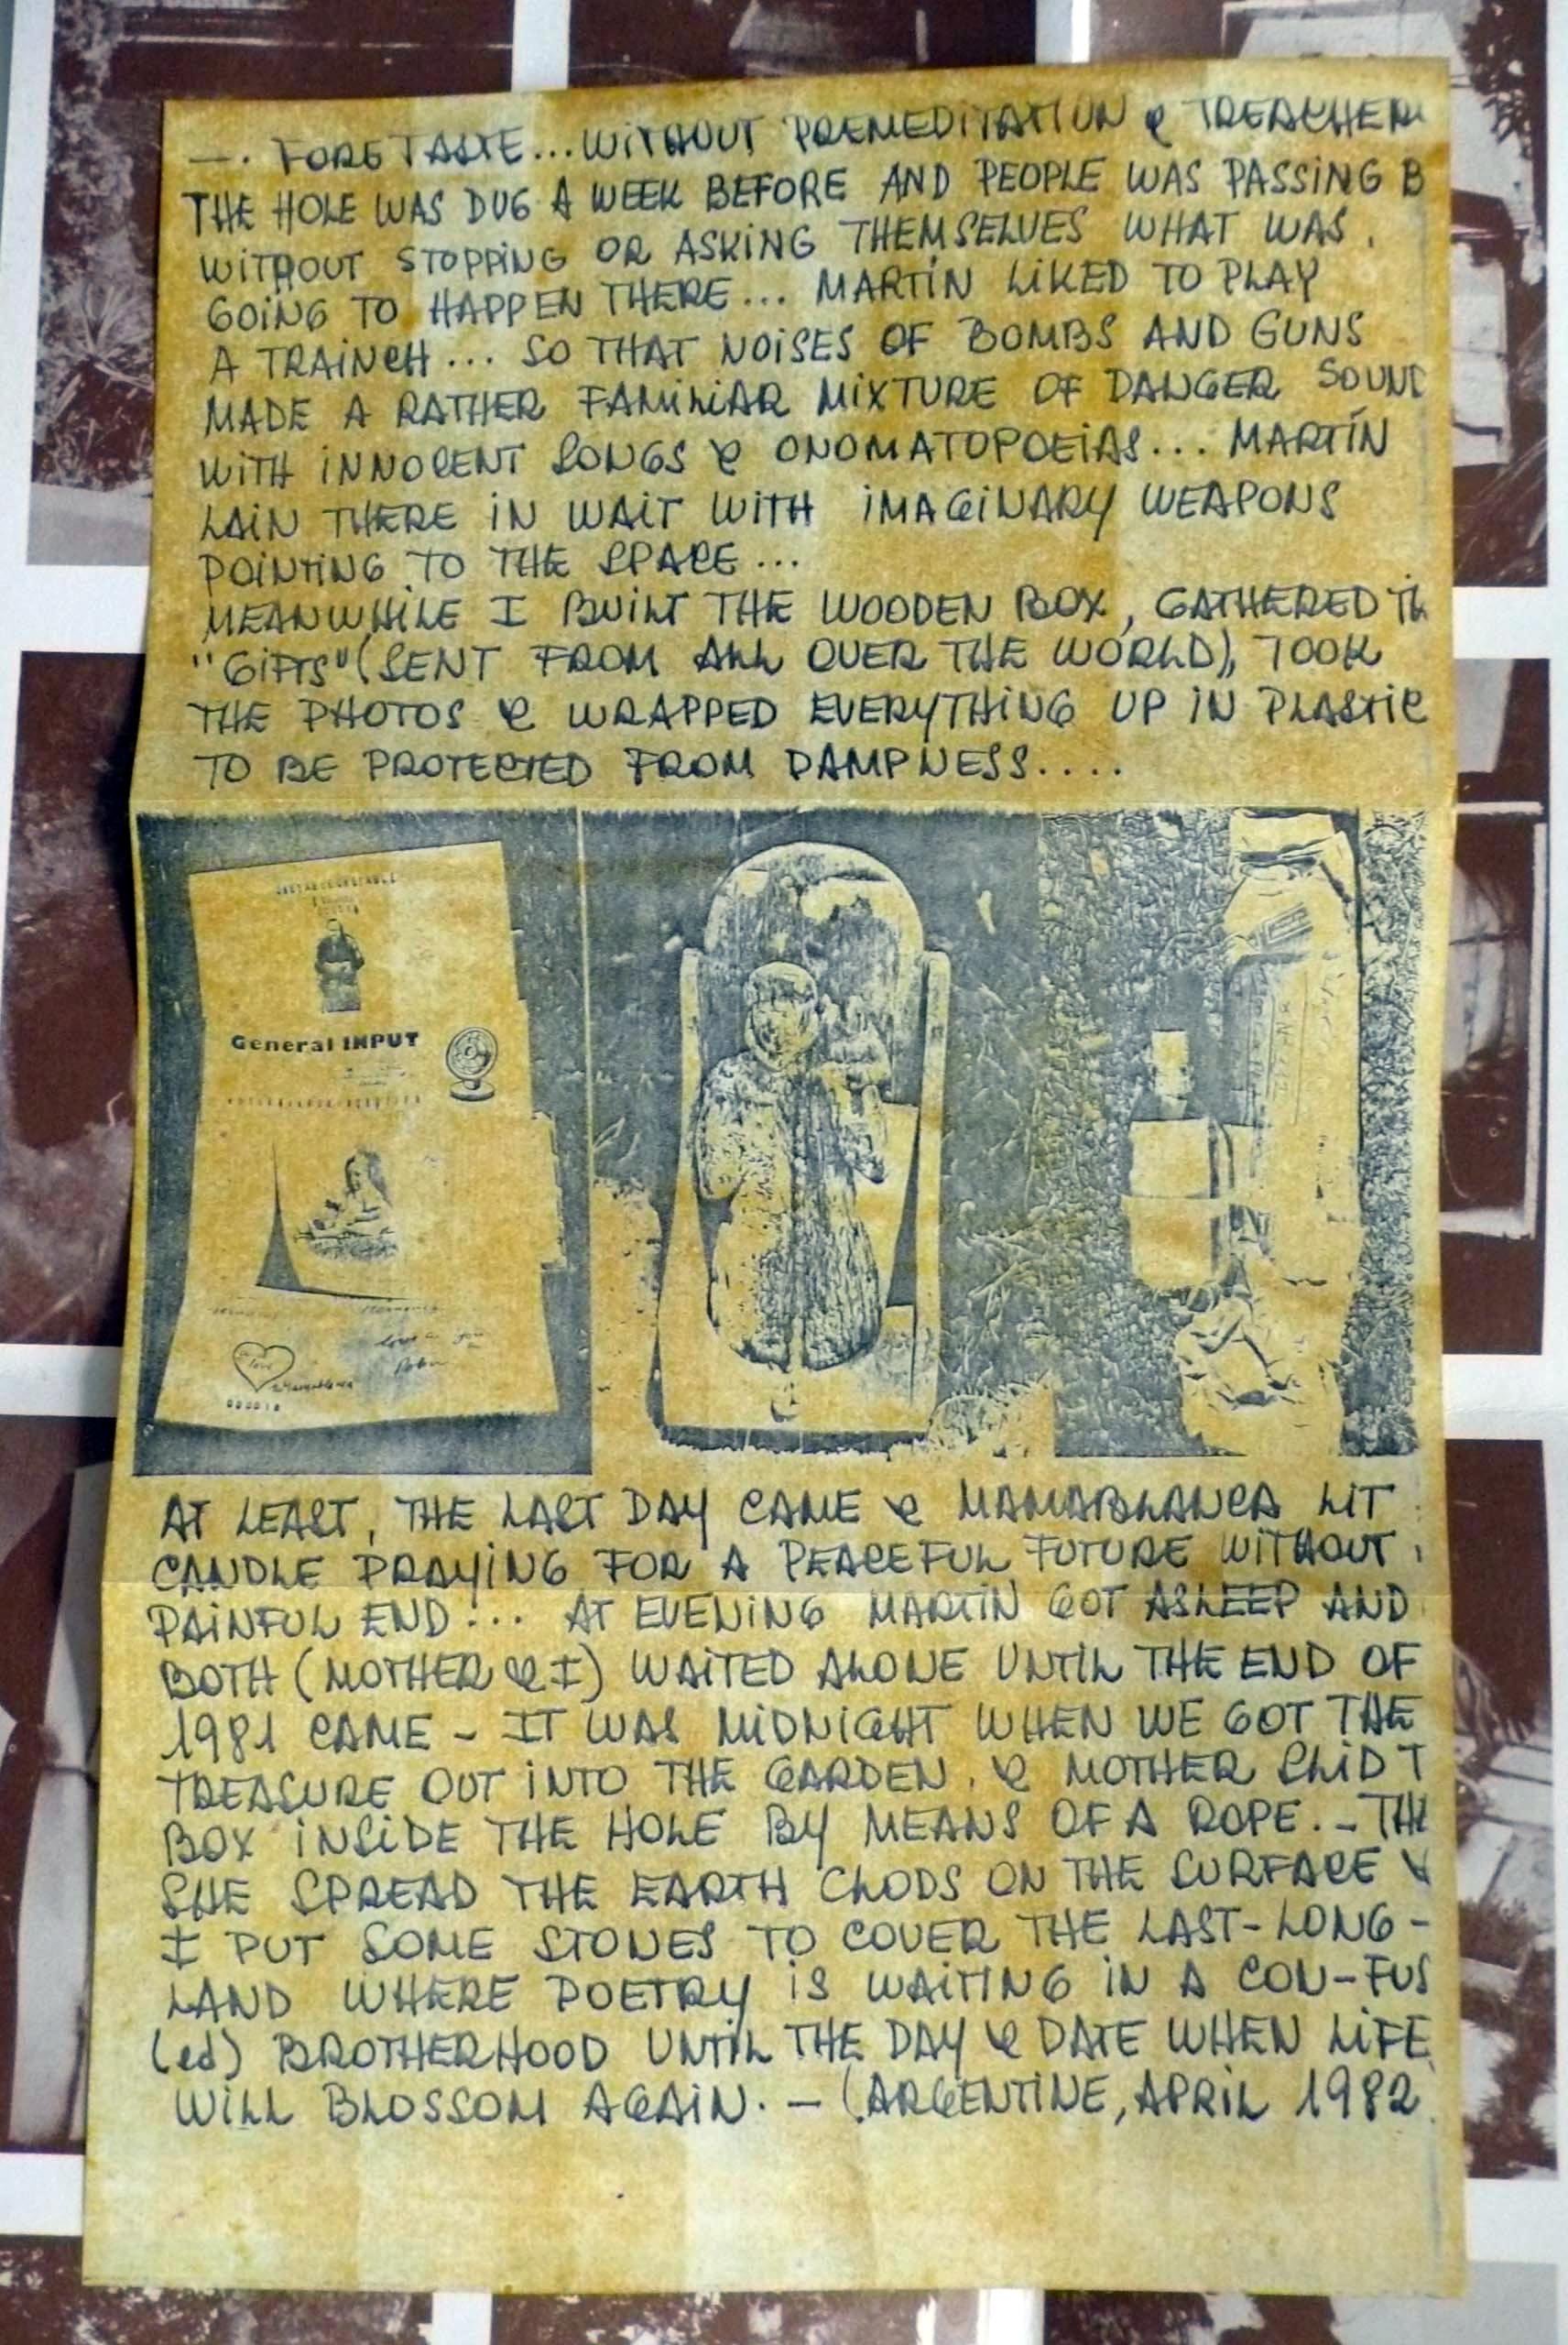 —. FORETASTE...WITHOUT PREMEDITATION & TREACHER
THE HOLE WAS DUG A WEEK BEFORE AND PEOPLE WAS PASSING B
WITHOUT STOPPING OR ASKING THEMSELVES WHAT WAS.
GOING TO HAPPEN THERE... MARTÍN LIKED TO PLAY
A TRAINCH... SO THAT NOISES OF BOMBS AND GUNS
MADE A RATHER FAMILIAR MIXTURE OF DANGER SOUND
WITH INNOCENT SONGS & ONOMATOPOEIAS... MARTÍN
LAIN THERE IN WAIT WITH IMAGINARY WEAPONS
POINTING TO THE SPACE...
MEANWHILE I BUILT THE WOODEN BOX, GATHERED TH
"GIFTS" (SENT FROM ALL OVER THE WORLD), TOOK
THE PHOTOS & WRAPPED EVERYTHING UP IN PLASTIC
TO BE PROTECTED FROM DAMPNESS....
General INPUT
love
AT LEAST, THE LAST DAY CAME & MAMABLANCA LIT
CANDLE PRAYING FOR A PEACEFUL FUTURE WITHOUT
PAINFUL END... AT EVENING MARTIN GOT ASLEEP AND
BOTH (MOTHER & I) WAITED ALONE UNTIL THE END OF
1981 CAME - IT WAS MIDNIGHT WHEN WE GOT THE
TREASURE OUT INTO THE GARDEN. & MOTHER SLID T
BOX INSIDE THE HOLE BY MEANS OF A ROPE. - THE
SHE SPREAD THE EARTH CLODS ON THE SURFACE &
I PUT SOME STONES TO COVER THE LAST-LONG-
LAND WHERE POETRY IS WAITING IN A CON-FUS
(ed) BROTHERHOOD UNTIL THE DAY & DATE WHEN LIFE
WILL BLOSSOM AGAIN. — (ARGENTINE, APRIL 1982